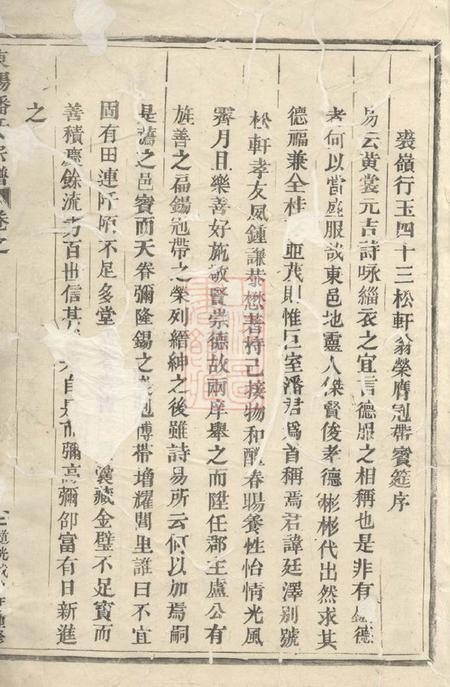 裘嶺行玉四十三松軒翁榮膺冠帶賓筵序
易云黃裳元吉詩咏緇衣之宜言德服之相稱也是非有德
者何以當盛服哉東邑地靈人傑賢俊孝德彬彬代出然求其
德福兼全桂 亞茂則惟巨室潘君爲首稱焉君諱廷澤別號
松軒孝友夙鍾謙恭懋著持己接物和醒春暘養性怡情光風
霽月日樂善好施敬賢崇德故兩庠舉之而陞任郡主盧公有
旌善之扁錫冠帶之榮列縉紳之後雖詩易所云何以加焉嗣
是薦之邑賓而天眷彌隆錫之 冠博帶增耀閭里誰曰不宜
固有田連阡陌不足多堂 藏金璧不足寶而
善積慶餘流芳百世信其 自是而彌高彌卲富有日新進
之
東陽潘氏宗譜 卷之
道光 年重修